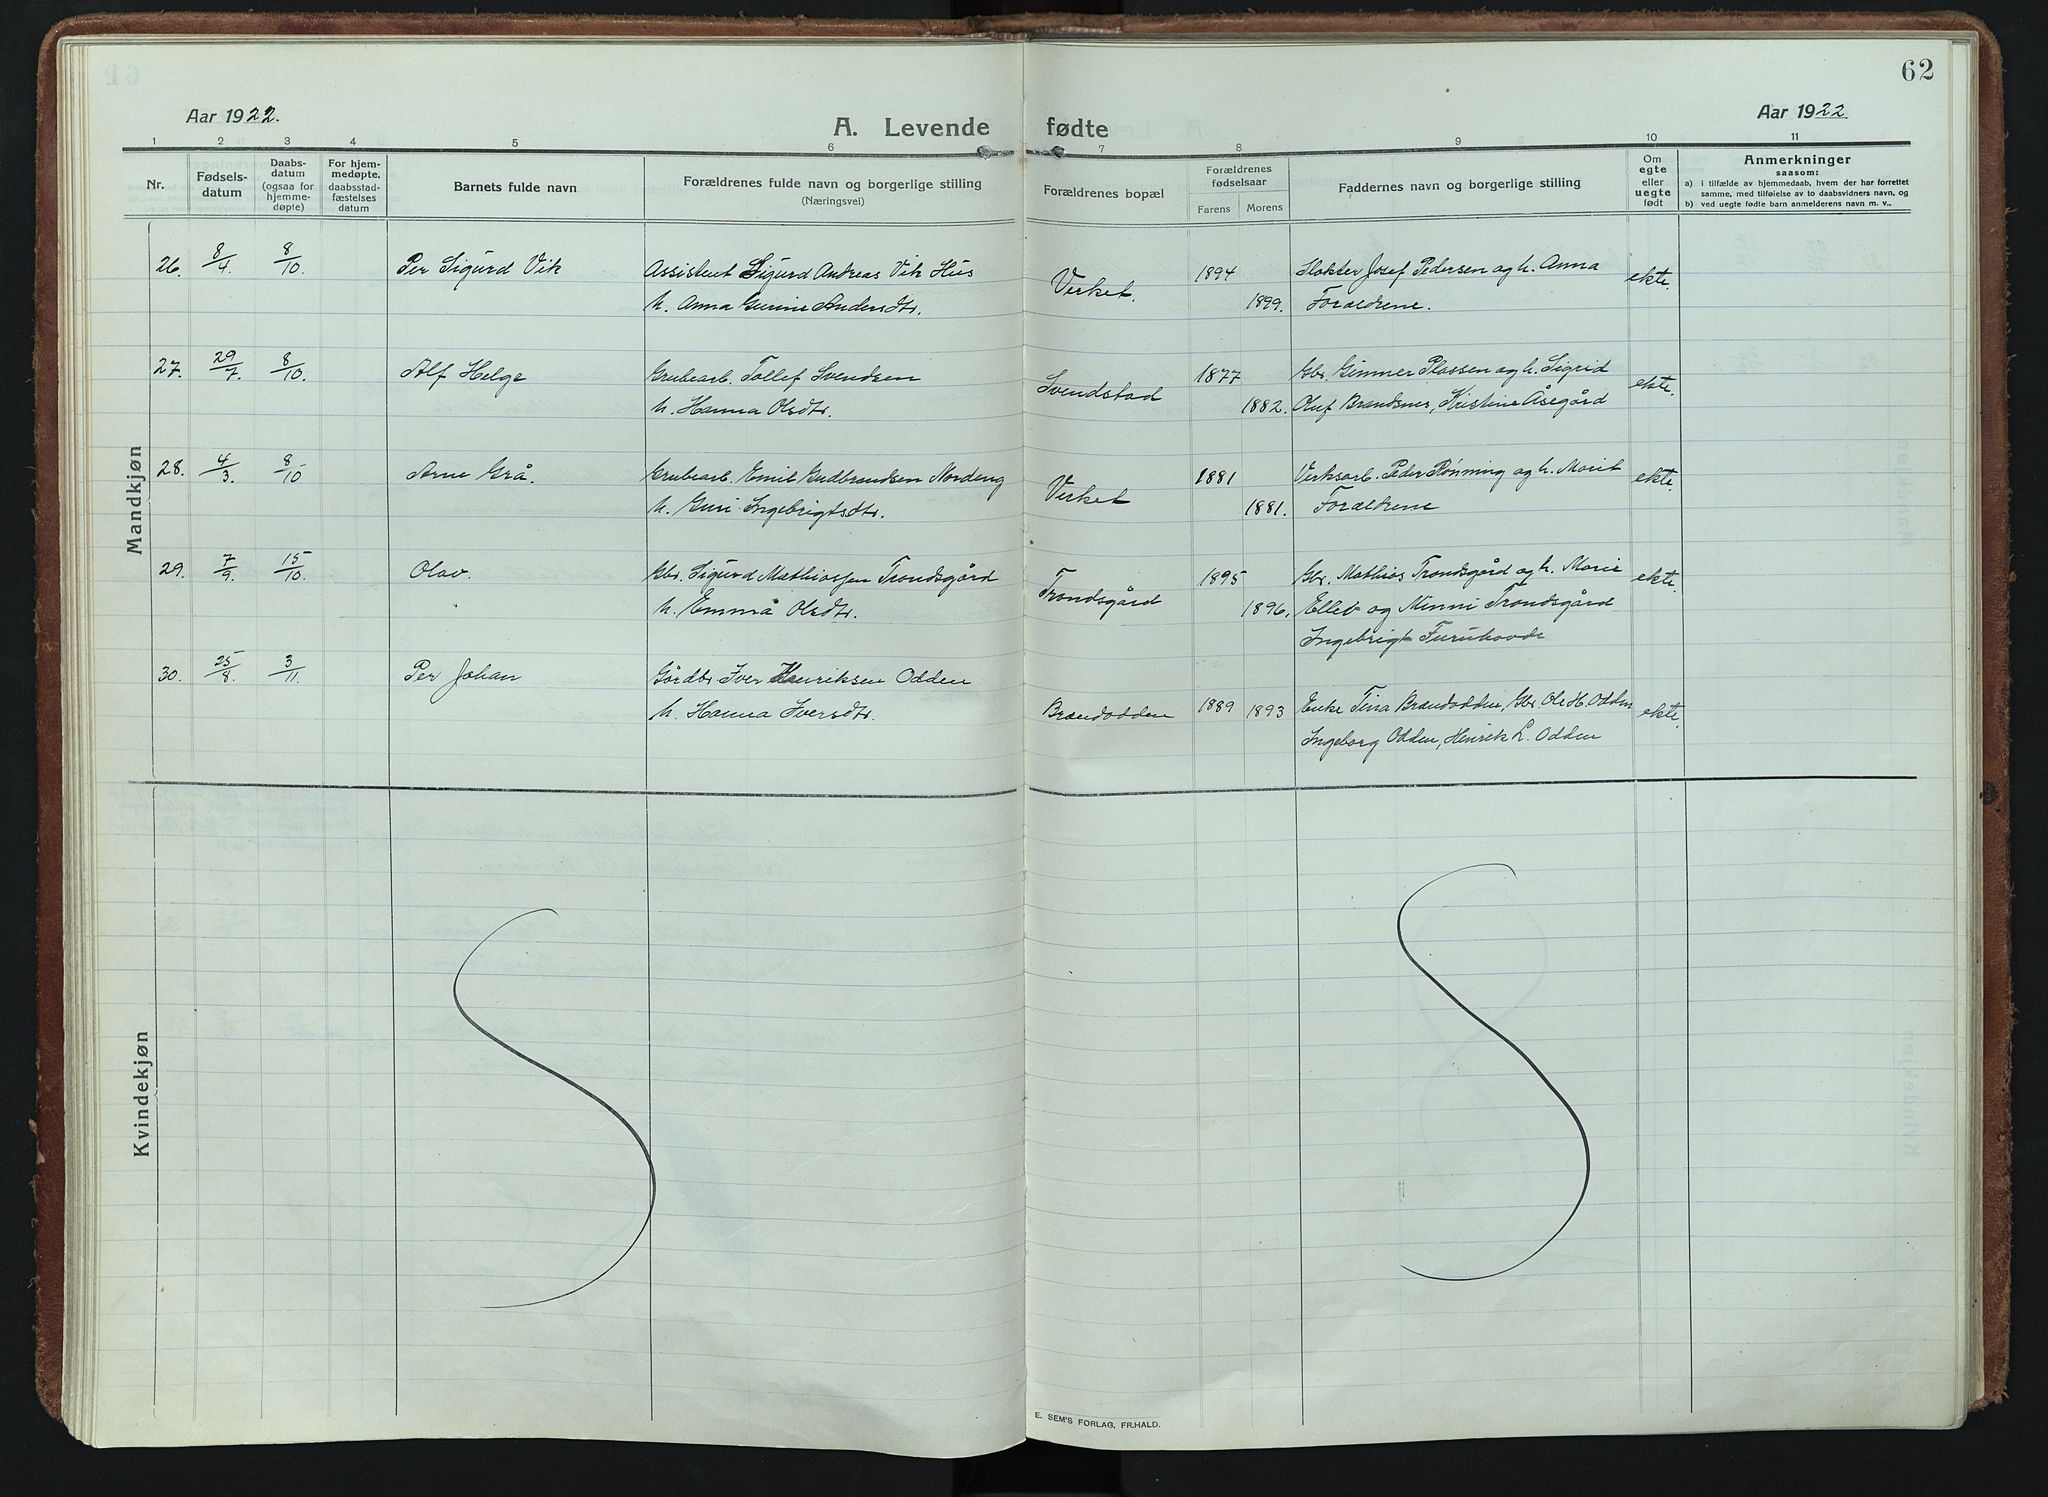 62
Aar 1922.
A. Levende fødte
Aar 1922.
1 2 3 4 5 6 7 8 9 10 11
Nr.
Fødselsdatum
Daabsdatum (ogsaa for hjemmedøpte)
For hjemmedøpte, daabsstadfæstelses datum
Barnets fulde navn
Forældrenes fulde navn og borgerlige stilling
(Næringsvei)
Forældrenes bopæl
Forældrenes fødselsaar
Farens Morens
Faddernes navn og borgerlige stilling
Om egte eller uegte født
Anmerkninger
saasom:
a) i tilfælde av hjemmedaab, hvem der har forrettet
samme, med tilføielse av to daabsvidners navn, og
b) ved uegte fødte barn anmelderens navn m. v..
Mandkjøn
26. 8/4. 8/10. Per Sigurd Vik Assistent Sigurd Andreas Vik Hus Verket. 1894 Slakter Josef Pedersen og h. Anna ekte.
h. Anna Gurine Andersdtr. 1899. Forældrene.
27. 29/7. 8/10. Alf Helge Grubearb. Tollef Svendsen Svendstad 1877 Gbr. Gimmer Plassen og h. Sigrid ekte.
h. Hanna Olsdtr. 1882. Oluf Brandsnes, Kristine Åsegård
28. 4/3. 8/10 Arne Grå. Grubearb. Emil Gudbrandsen Nordeng Verket 1881 Verksarb. Peder Rønning og h. Marit ekte.
h. Guri Ingebrigtsdtr. 1881. Forældrene
29. 7/9. 15/10. Olav. Gbr. Sigurd Mathiassen Trondsgård Trondsgård 1895 Gbr. Mathias Trondsgård og h. Marie ekte.
h. Emma Olsdtr. 1896. Ellev og Minni Trondsgård
Ingebrigt Furuhovde
30. 25/8. 3/11. Per Johan Gårdbr. Iver Henriksen Odden Brændodden 1889 1893 Enke Tina Brændodden, Gbr. Ole H. Odden ekte.
h. Hanna Iversdtr. Ingeborg Odden, Henrik L. Odden
Kvindekjøn
E. SEM'S FORLAG, FR.HALD.